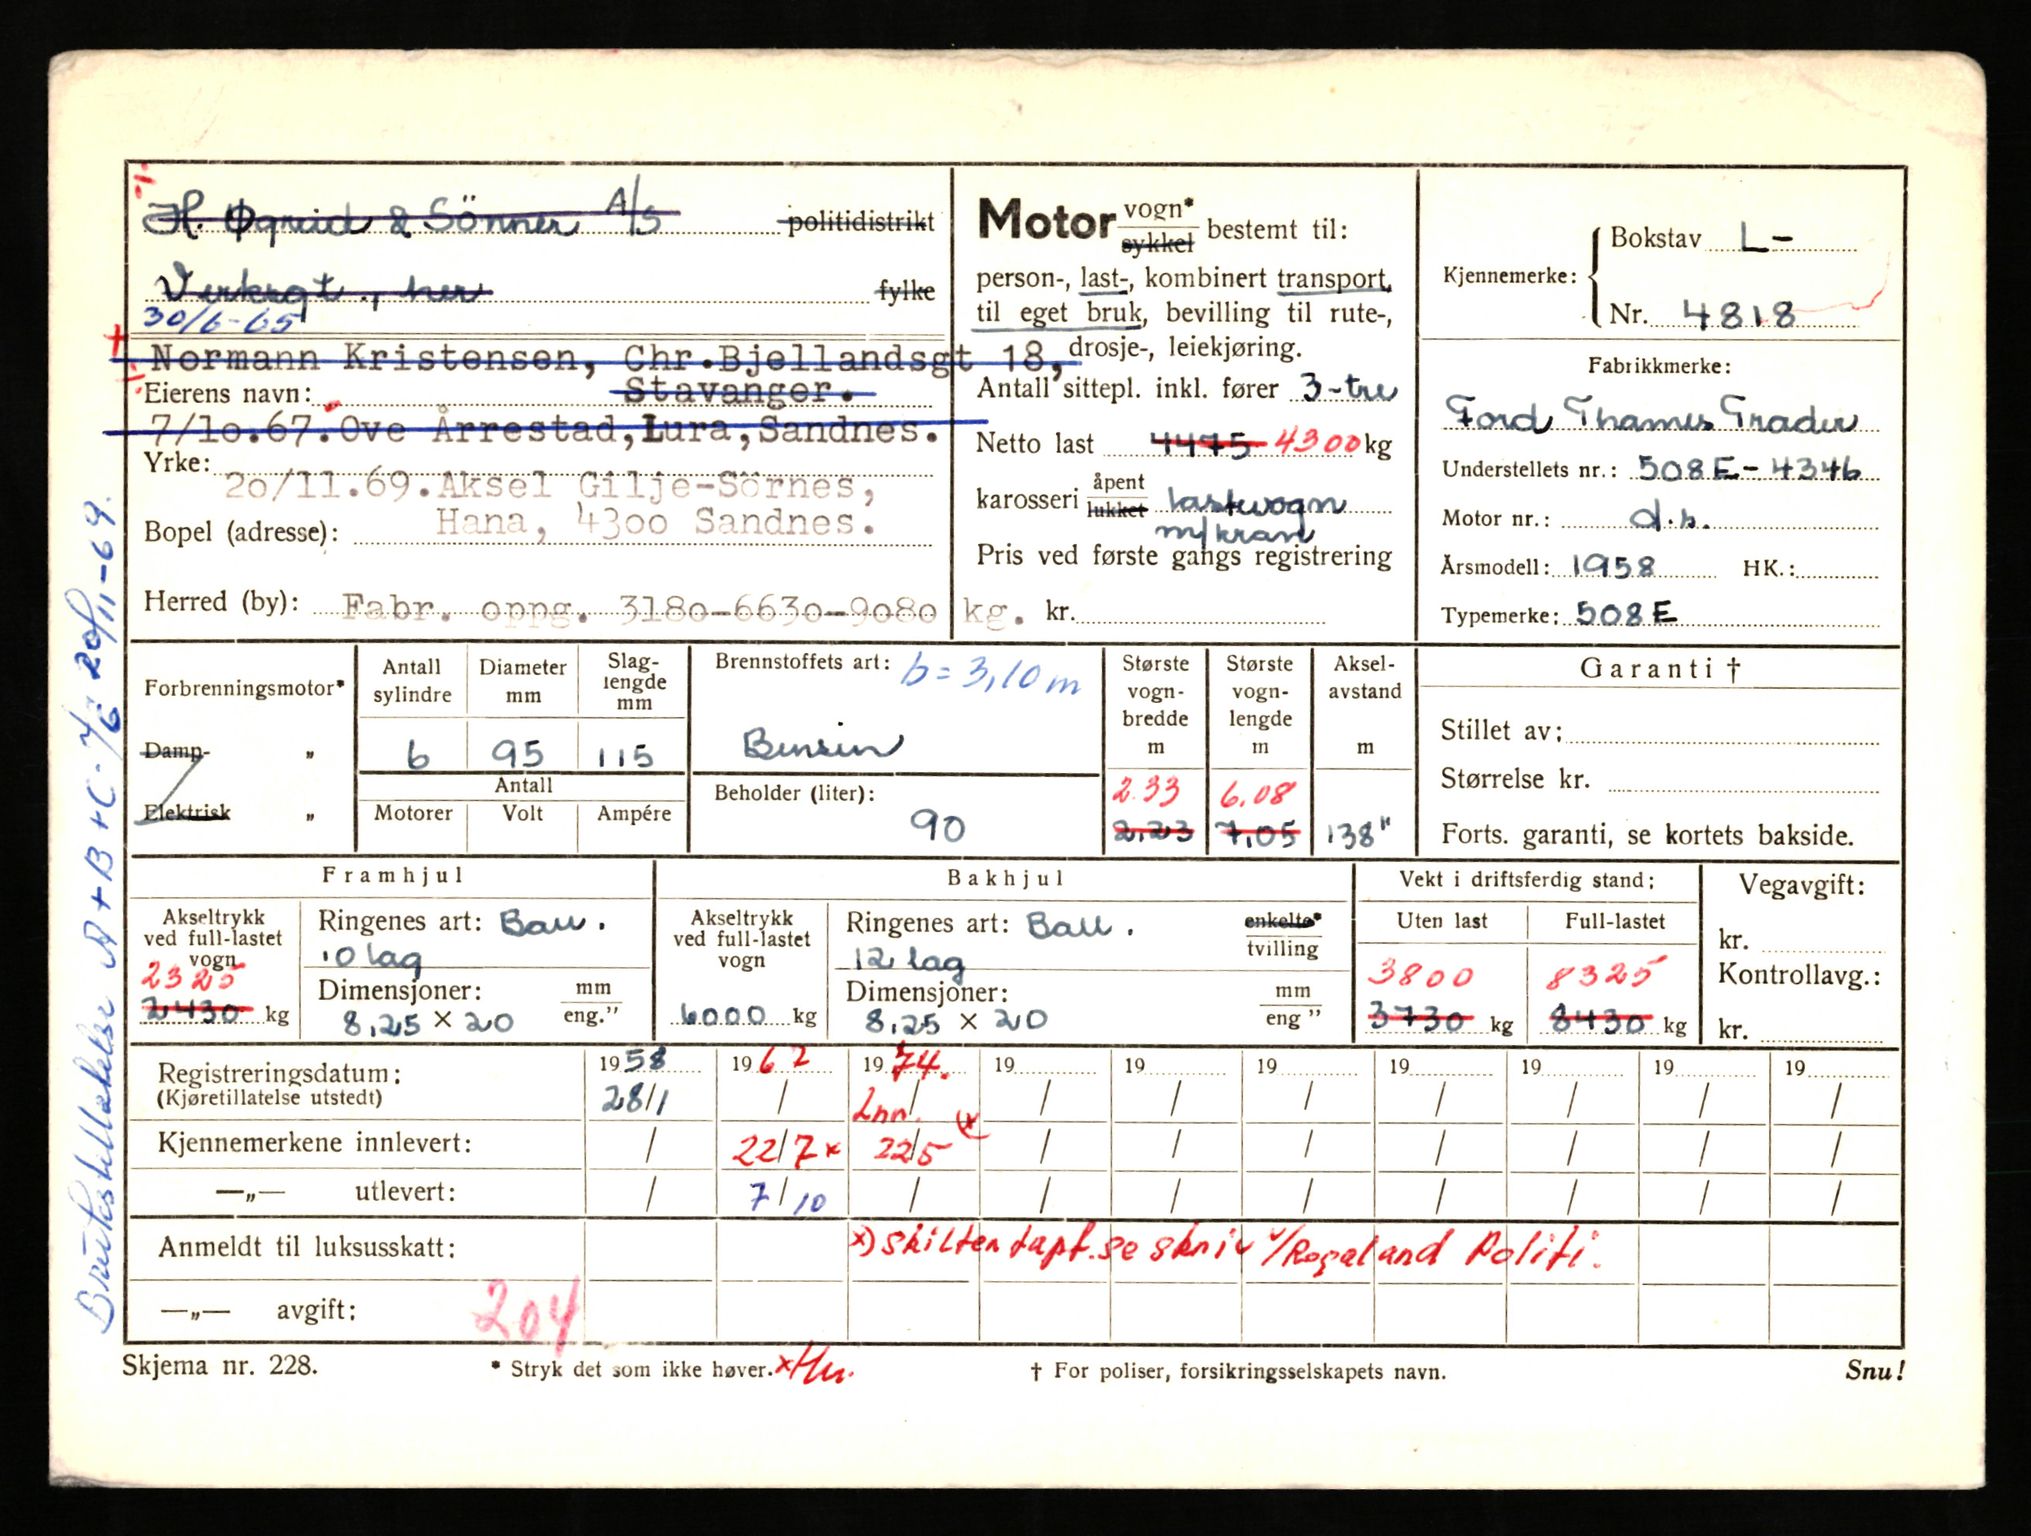 H. Øgreid & Sönner A/S politidistrikt
Verksgt., her fylke
30/6-65
Normann Kristensen, Chr.Bjellandsgt 18,
Eierens navn: Stavanger.
7/10.67.Ove Årrestad,Lura,Sandnes.
Yrke:
20/11.69.Aksel Gilje-Sörnes,
Bopel (adresse): Hana, 4300 Sandnes.
Herred (by): Fabr. oppg. 3180-6630-9080 kg.
Motor vogn* sykkel bestemt til:
person-, last-, kombinert transport,
til eget bruk, bevilling til rute-,
drosje-, leiekjøring.
Antall sittepl. inkl. fører 3-tre
Netto last 4475 4300 kg
karosseri åpent lukket lastevogn
m/kran
Pris ved første gangs registrering
kr.
Kjennemerke: Bokstav L-
Nr. 4818
Fabrikkmerke:
Ford Thames Trader
Understellets nr.: 508E-4346
Motor nr.: d.s.
Årsmodell: 1958 HK.:
Typemerke: 508E
Forbrenningsmotor*
Damp- "
Elektrisk "
Antall sylindre Diameter mm Slaglengde mm
6 95 115
Antall
Motorer Volt Ampére
Brennstoffets art: b = 3,10 m
Bensin
Beholder (liter):
90
Største vognbredde m Største vognlengde m Akselavstand m
2.33 6.08
2,23 7,05 138"
Garanti †
Stillet av:
Størrelse kr.
Forts. garanti, se kortets bakside.
Framhjul
Akseltrykk ved full-lastet vogn
2325
2430 kg
Ringenes art: Ball.
10 lag
Dimensjoner: mm eng."
8,25 x 20
Bakhjul
Akseltrykk ved full-lastet vogn
6000 kg
Ringenes art: Ball. enkelte* tvilling
12 lag
Dimensjoner: mm eng "
8,25 x 20
Vekt i driftsferdig stand:
Uten last Full-lastet
3800 8325
3730 kg 8430 kg
Vegavgift:
kr.
Kontrollavg.:
kr.
Registreringsdatum: 1958 1962 1974. 19 19 19 19 19 19 19
(Kjøretillatelse utstedt) 28/1 / Inn. / / / / / / / /
Kjennemerkene innlevert: / 22/7 x 22/5 (x / / / / / / /
—„— utlevert: / 7/10 / / / / / / / /
Anmeldt til luksusskatt: x) skilten tapt. se skriv v/Rogaland Politi.
—„— avgift: 204
Skjema nr. 228. * Stryk det som ikke høver. † For poliser, forsikringsselskapets navn. Snu!
Brukstillatelse A+B+C- 20/11-69.